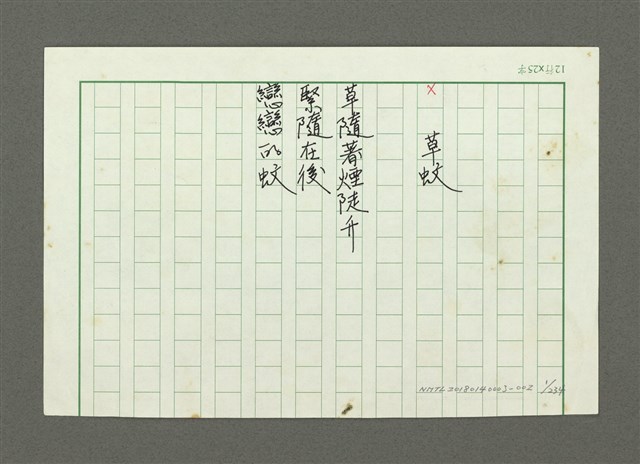 12行×25字
×
草蚊
草隨著煙陡升
緊隨在後
戀戀的蚊
NMTL20180140003-002 1/234